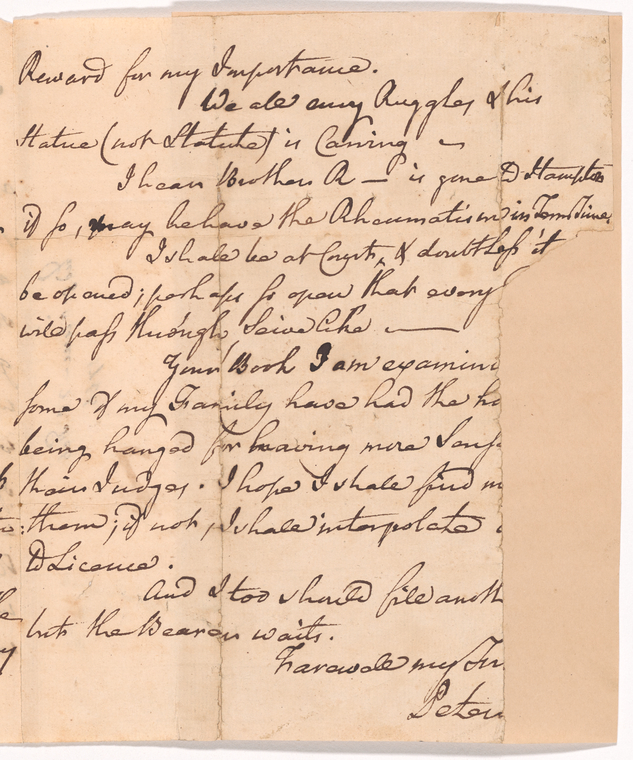 Reward for my Importance.
We all envy Ruggles & his
Statue (not Statute) is Carving —
I hear Brother R — is gone to Hampton
if so, may he have the Rheumatism in Term Time
I shall be at Court, & doubtless it
be opened; perhaps so open that every
will pass through, Seive like —
Your Book I am examini
some of my Family have had the ho
being hanged for having more Sense
than Judges. I hope I shall find m
them; if not, I shall interpolate
Licence.
And I too should file anoth
but the Bearer waits.
Farewell my Fr
Peter